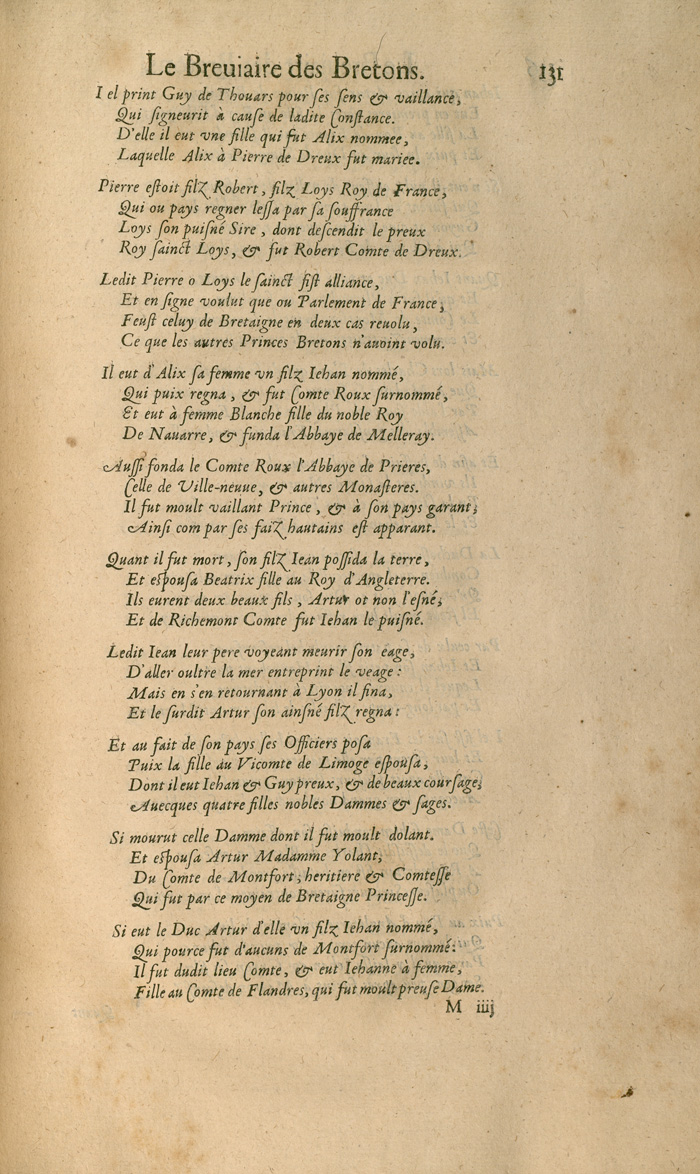 Le Breuiaire des Bretons. 131
I el print Guy de Thouars pour ſes ſens & vaillance,
Qui ſigneurit à cauſe de ladite Conſtance.
D'elle il eut vne fille qui fut Alix nommee,
Laquelle Alix à Pierre de Dreux fut mariee.
Pierre eſtoit filz Robert, filz Loys Roy de France,
Qui ou pays regner leſſa par ſa ſouffrance
Loys ſon puiſné Sire, dont deſcendit le preux
Roy ſainct Loys, & fut Robert Comte de Dreux.
Ledit Pierre o Loys le ſainct fiſt alliance,
Et en ſigne voulut que ou Parlement de France,
Feuſt celuy de Bretaigne en deux cas reuolu,
Ce que les autres Princes Bretons n'auoint volu.
Il eut d'Alix ſa femme vn filz Iehan nommé,
Qui puix regna, & fut Comte Roux ſurnommé,
Et eut à femme Blanche fille du noble Roy
De Nauarre, & funda l'Abbaye de Melleray.
Auſſi fonda le Comte Roux l'Abbaye de Prieres,
Celle de Ville-neuue, & autres Monaſteres.
Il fut moult vaillant Prince, & à ſon pays garant;
Ainſi com par ſes faiz hautains eſt apparant.
Quant il fut mort, ſon filz Iean poſſida la terre,
Et eſpouſa Beatrix fille au Roy d'Angleterre.
Ils eurent deux beaux fils, Artur ot non l'eſné;
Et de Richemont Comte fut Iehan le puiſné.
Ledit Iean leur pere voyeant meurir ſon eage,
D'aller oultre la mer entreprint le veage:
Mais en s'en retournant à Lyon il fina,
Et le ſurdit Artur ſon ainſné filz regna:
Et au fait de ſon pays ſes Officiers poſa
Puix la fille au Vicomte de Limoge eſpouſa,
Dont il eut Iehan & Guy preux, & de beaux courſage;
Auecques quatre filles nobles Dammes & ſages.
Si mourut celle Damme dont il fut moult dolant.
Et eſpouſa Artur Madamme Yolant,
Du Comte de Montfort, heritiere & Comteſſe
Qui fut par ce moyen de Bretaigne Princeſſe.
Si eut le Duc Artur d'elle vn filz Iehan nommé,
Qui pource fut d'aucuns de Montfort ſurnommé:
Il fut dudit lieu Comte, & eut Iehanne à femme,
Fille au Comte de Flandres, qui fut moult preuſe Dame.
M iiij